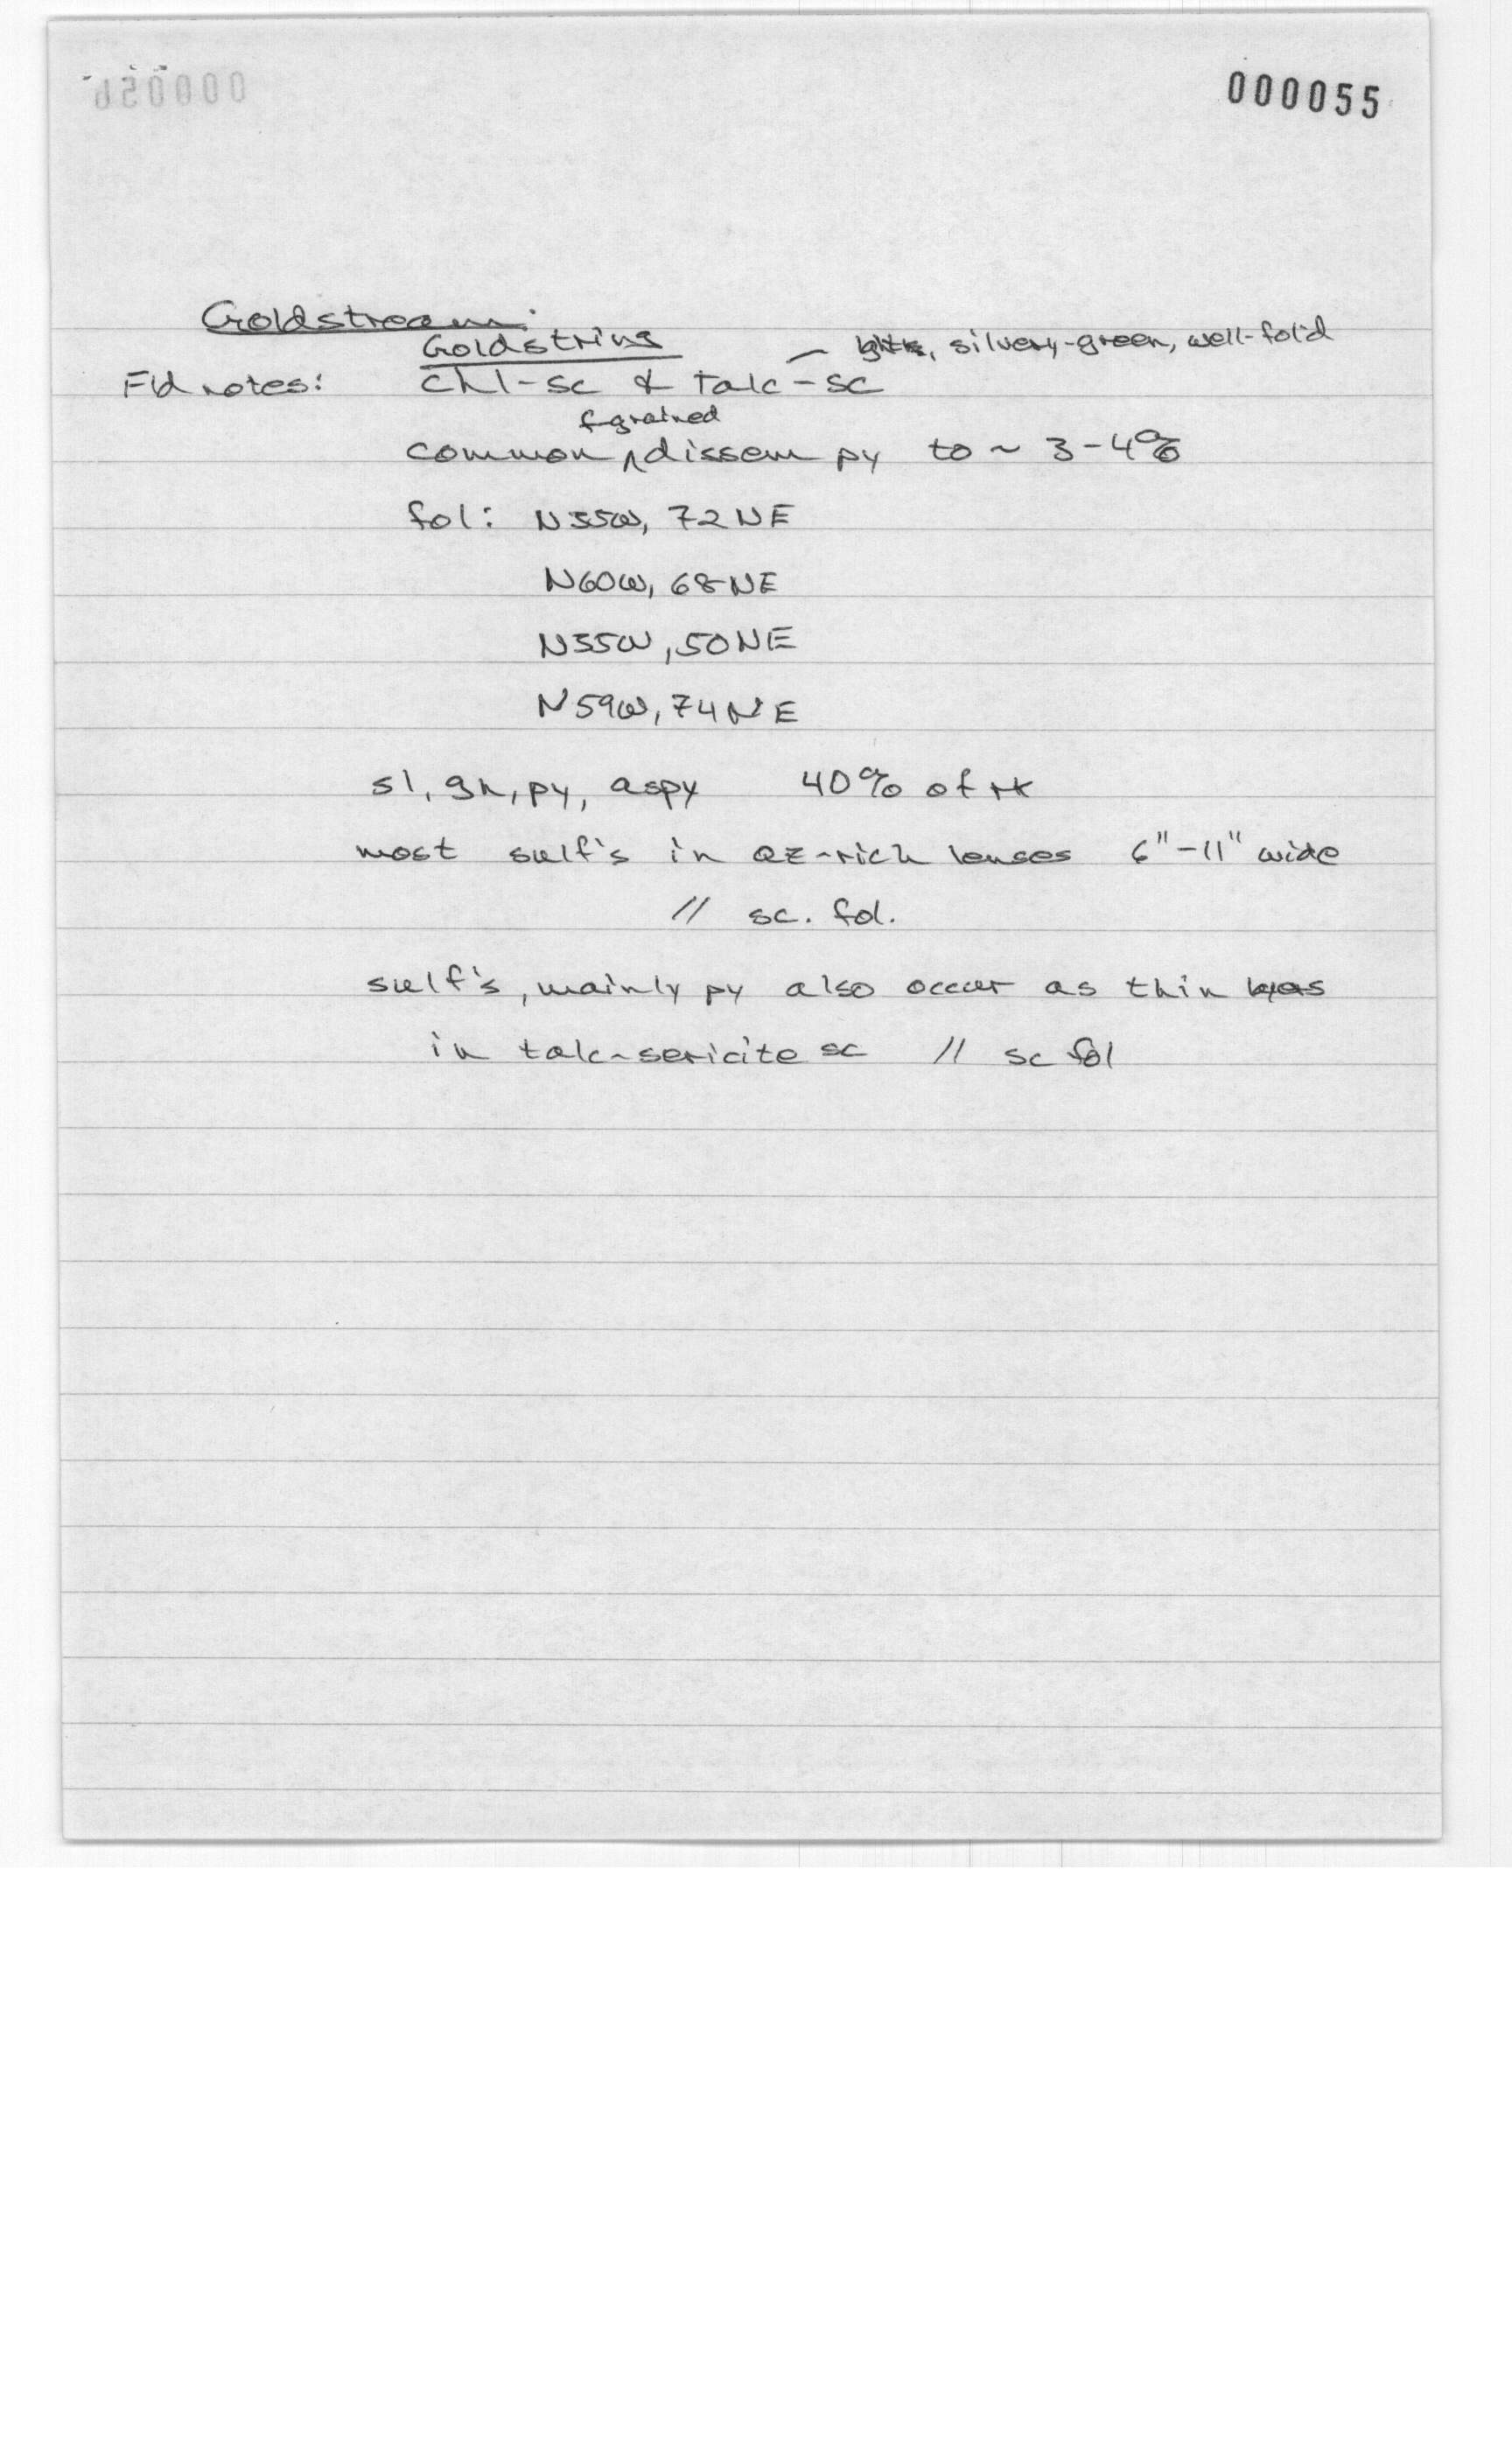 000055
Goldstream:
Goldstring
— silvery-green, well-fol'd
Fld notes: chl-sc & talc-sc
f-grained
common ^ dissem py to ~ 3-4%
fol: N55W, 72NE
N60W, 68NE
N55W, 50NE
N59W, 74NE
sl, gn, py, aspy 40% of rk
most sulf's in qz-rich lenses 6"-11" wide
// sc. fol.
sulf's, mainly py also occur as thin lyrs
in talc-sericite sc // sc fol